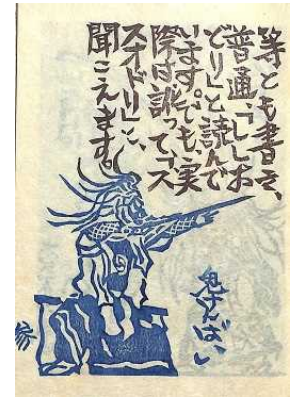 等とも書き、
普通、「ししお
どり」と読んで
います。でも、実
際は訛って「ス
スオドリ」と、
聞こえます。
鬼けんばい